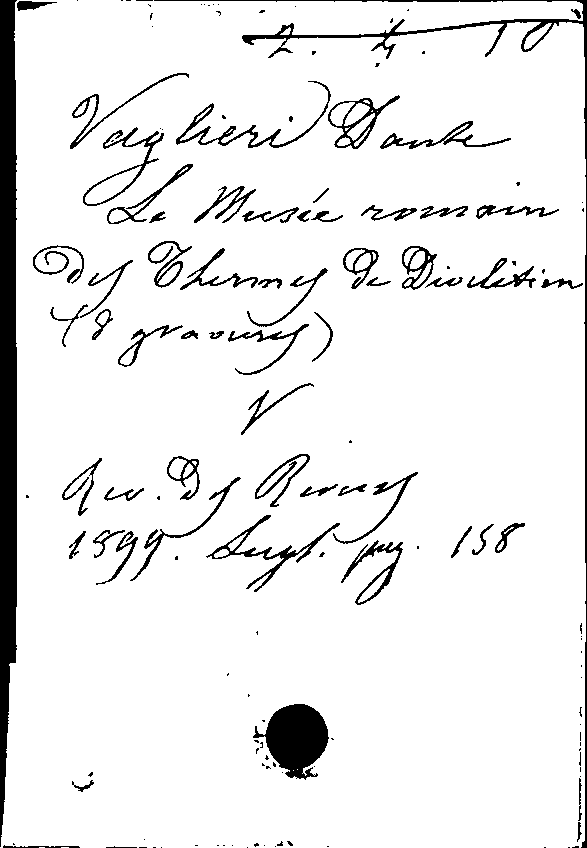 2. 4. 10
Vaglieri Dante
Le Musée romain
des Thermes de Dioclétien
(8 gravures)
V
Rev. des Revues
1899. Sept. pag. 158